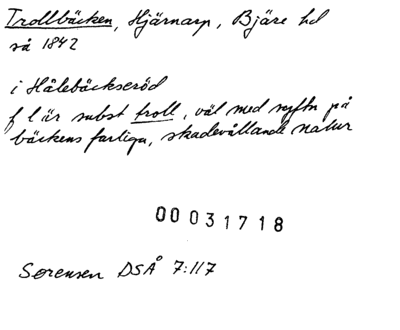 Trollbäcken, Hjärnarp, Bjäre hd
så 1842
i Hålebäckseröd
f l är subst troll, väl med syftn på
bäckens farliga, skadevållande natur
00031718
Sørensen DSÅ 7:117